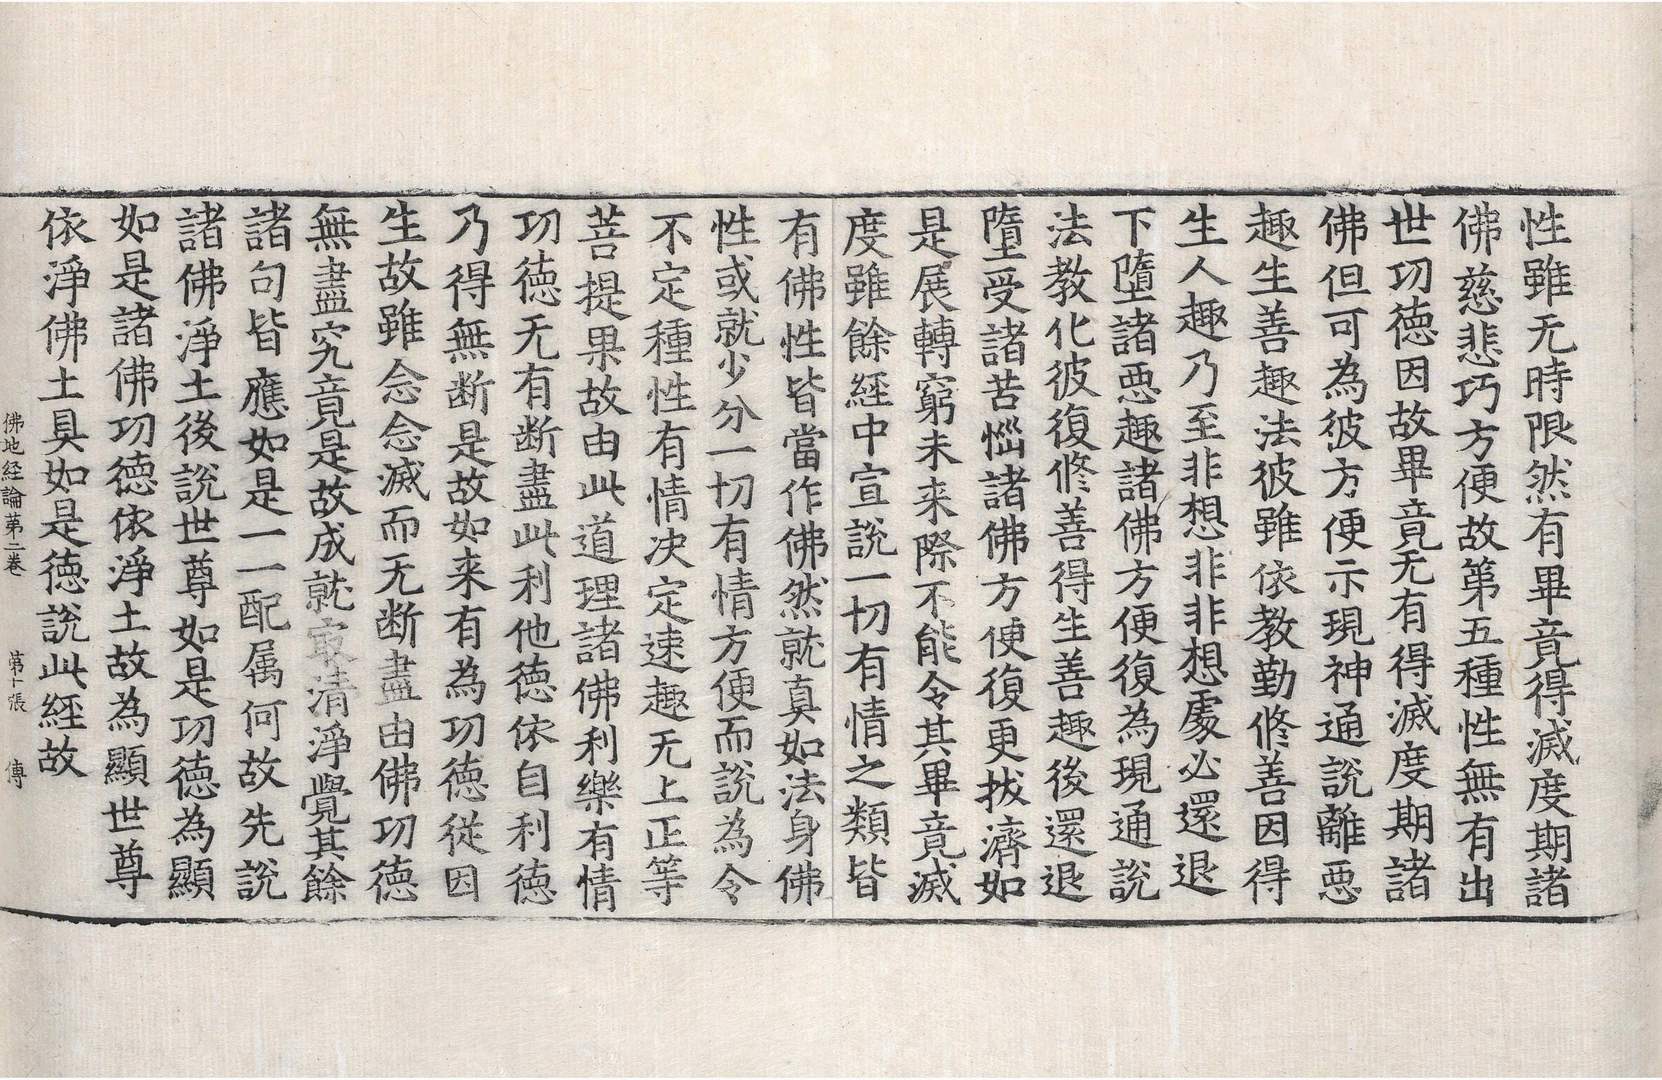 性雖无時限然有畢竟得滅度期諸
佛慈悲巧方便故第五種性無有出
世功德因故畢竟无有得滅度期諸
佛但可為彼方便示現神通說離惡
趣生善趣法彼雖依教勤修善因得
生人趣乃至非想非非想處必還退
下墮諸惡趣諸佛方便復為現通說
法教化彼復修善得生善趣後還退
墮受諸苦惱諸佛方便復更拔濟如
是展轉窮未来際不能令其畢竟滅
度雖餘經中宣說一切有情之類皆
有佛性皆當作佛然就真如法身佛
性或就少分一切有情方便而說為令
不定種性有情决定速趣无上正等
菩提果故由此道理諸佛利樂有情
功德无有断盡此利他德依自利德
乃得無断是故如来有為功德從因
生故雖念念滅而无断盡由佛功德
無盡究竟是故成就㝡清淨覺其餘
諸句皆應如是一一配属何故先說
諸佛淨土後說世尊如是功德為顯
如是諸佛功德依淨土故為顯世尊
依淨佛土具如是德說此經故
佛地经論第二卷 第十張 傳